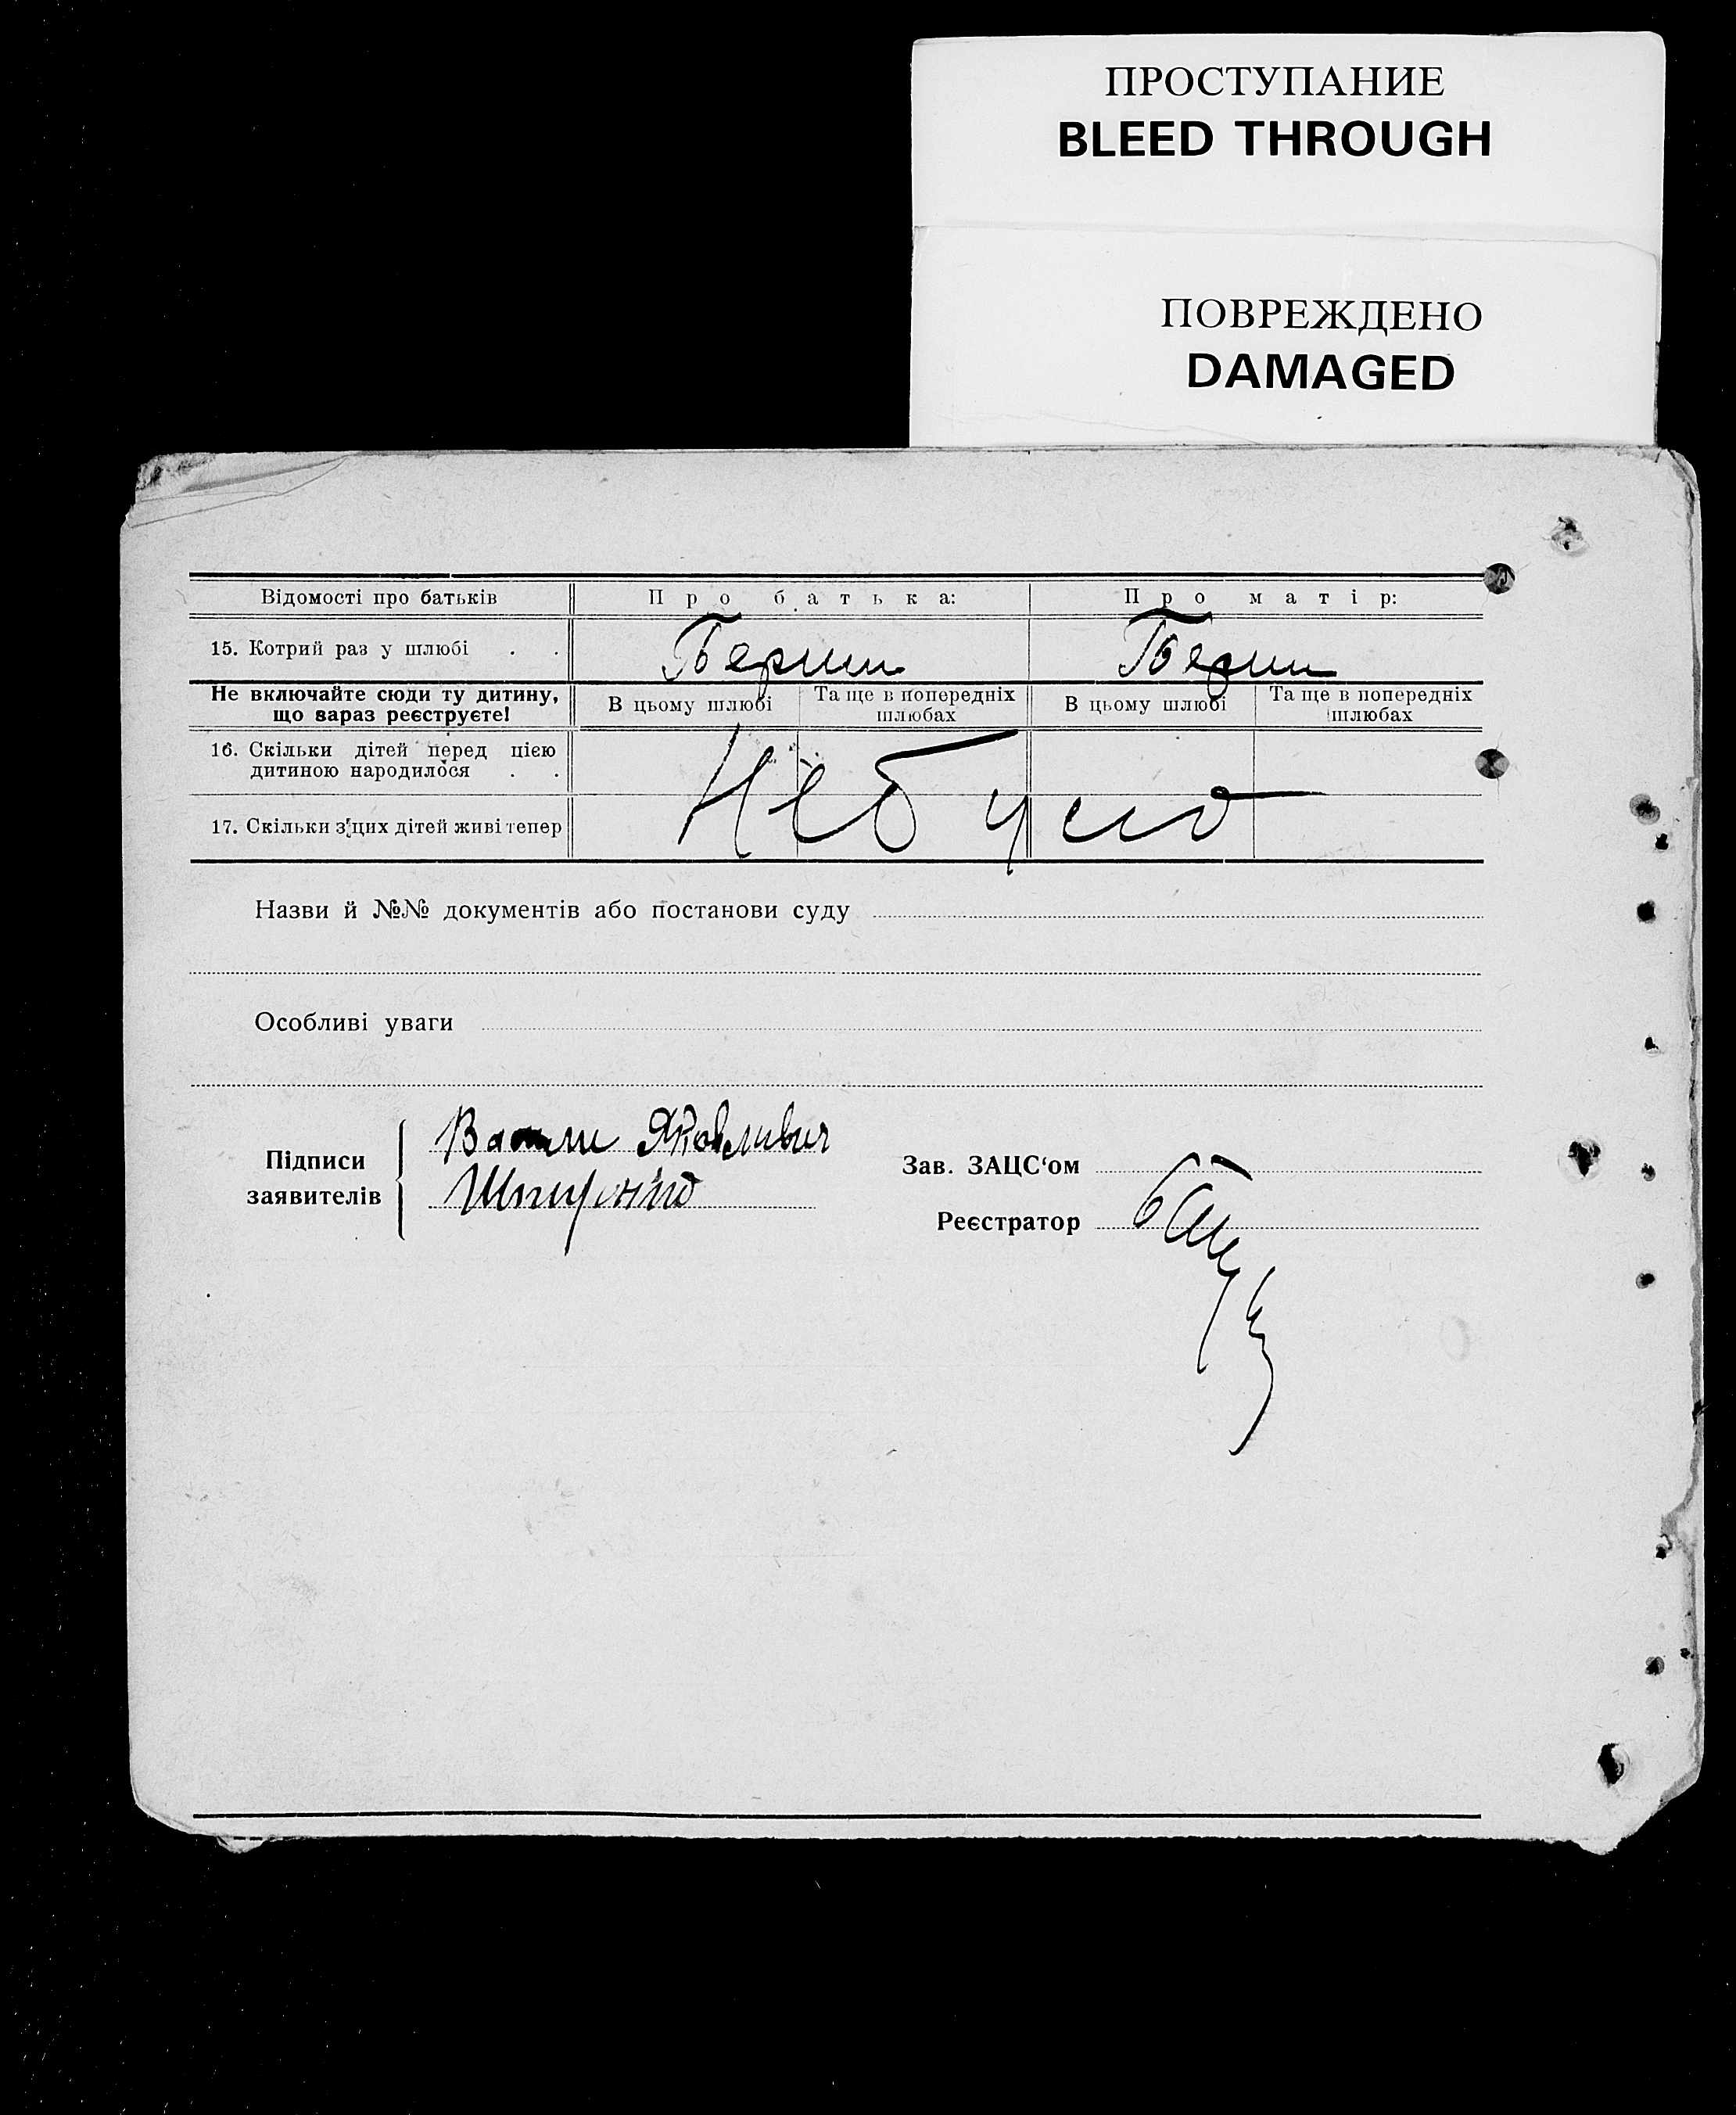 ПРОСТУПАНИЕ
BLEED THROUGH
ПОВРЕЖДЕНО
DAMAGED
Відомості про батьків Про батька: Про матір:
15. Котрий раз у шлюбі . .
Не включайте сюди ту дитину, що вараз реєструєте! В цьому шлюбі Та ще в попередніх шлюбах В цьому шлюбі Та ще в попередніх шлюбах
16. Скільки дітей перед цією
дитиною народилося . .
Небуло
17. Скільки з цих дітей живі тепер
Назви й №№ документів або постанови суду
Особливі уваги
Підписи
заявителів
Яковливич
Зав. ЗАЦС‘ом
Реєстратор